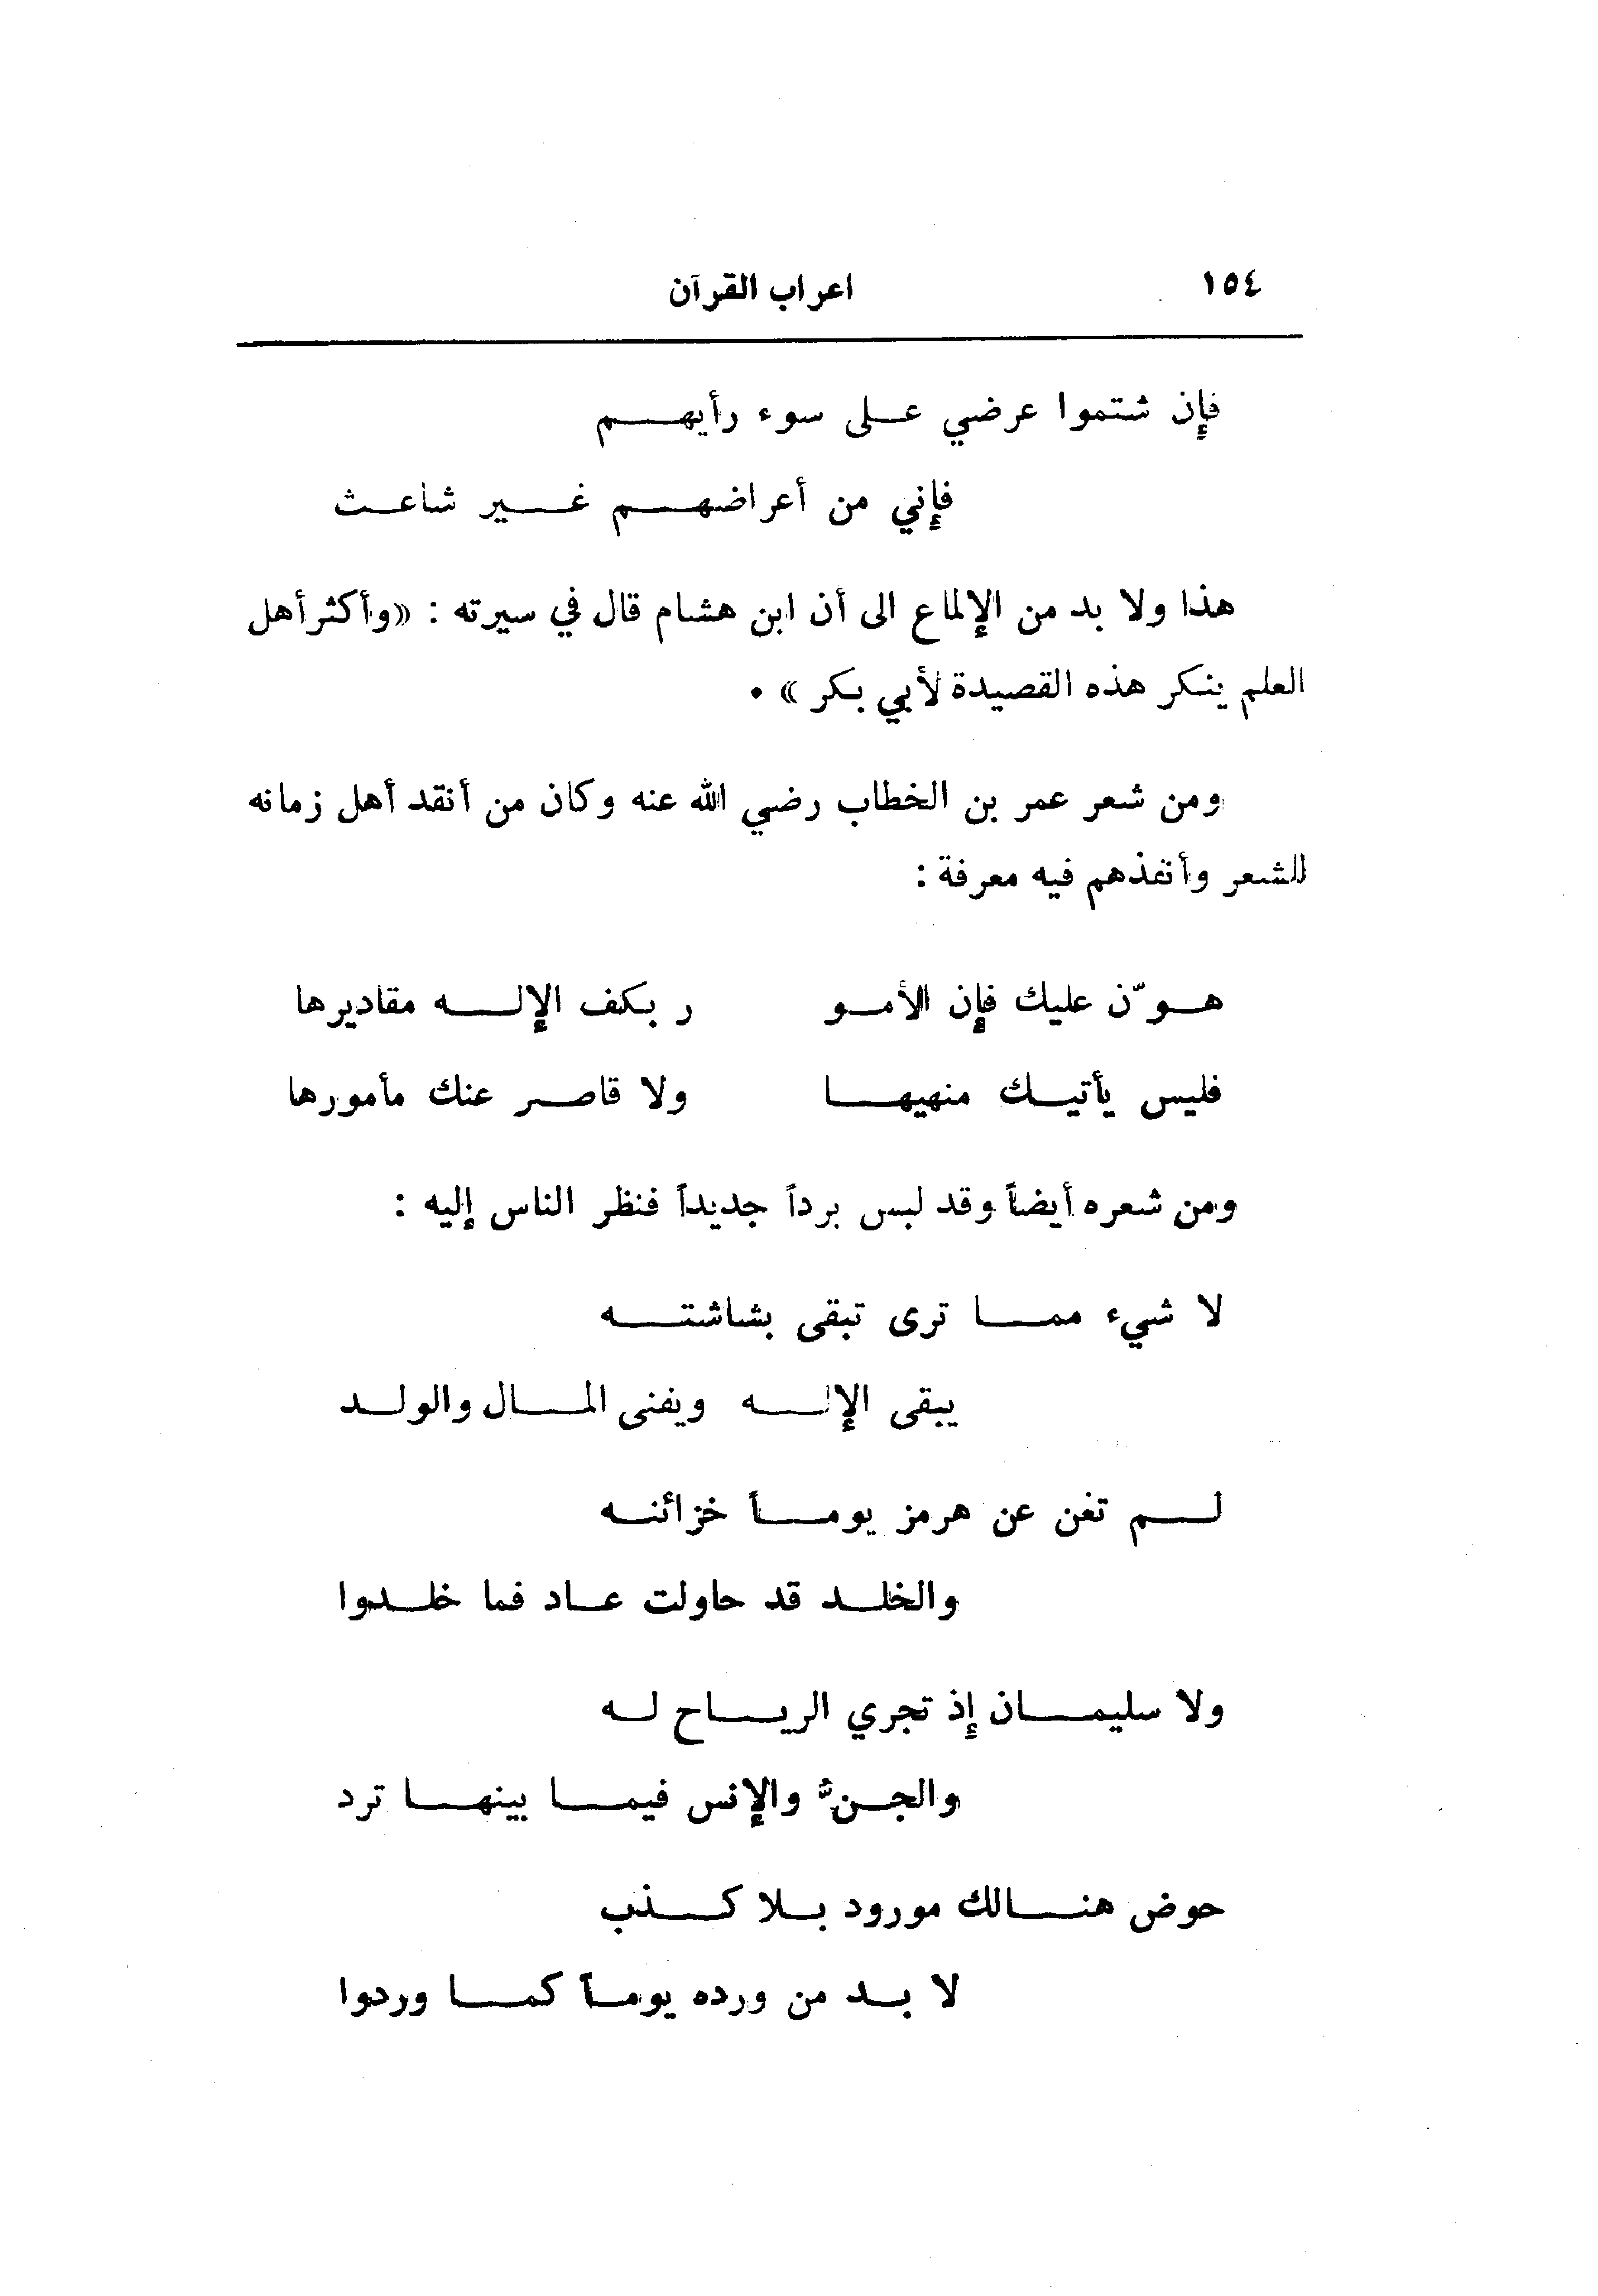 ١٥٤
اعراب القرآن
فإن شتموا عرضي على سوء رأيهم
فإني من أعراضهم غير شاعث
هذا ولا بد من الإلماع الى أن ابن هشام قال في سيرته : «وأكثر أهل
العلم ينكر هذه القصيدة لأبي بكر » ٠
ومن شعر عمر بن الخطاب رضي الله عنه وكان من أنقد أهل زمانه
للشعر وأنفذهم فيه معرفة :
هوّن عليك فإن الأمو ر بكف الإله مقاديرها
فليس يأتيك منهيها ولا قاصر عنك مأمورها
ومن شعره أيضاً وقد لبس برداً جديداً فنظر الناس إليه :
لا شيء مما ترى تبقى بشاشته
يبقى الإله ويفنى المال والولد
لم تغن عن هرمز يوماً خزائنه
والخلد قد حاولت عاد فما خلدوا
ولا سليمان إذ تجري الرياح له
والجنُّ والإنس فيما بينها ترد
حوض هنالك مورود بلا كذب
لا بد من ورده يوماً كما وردوا